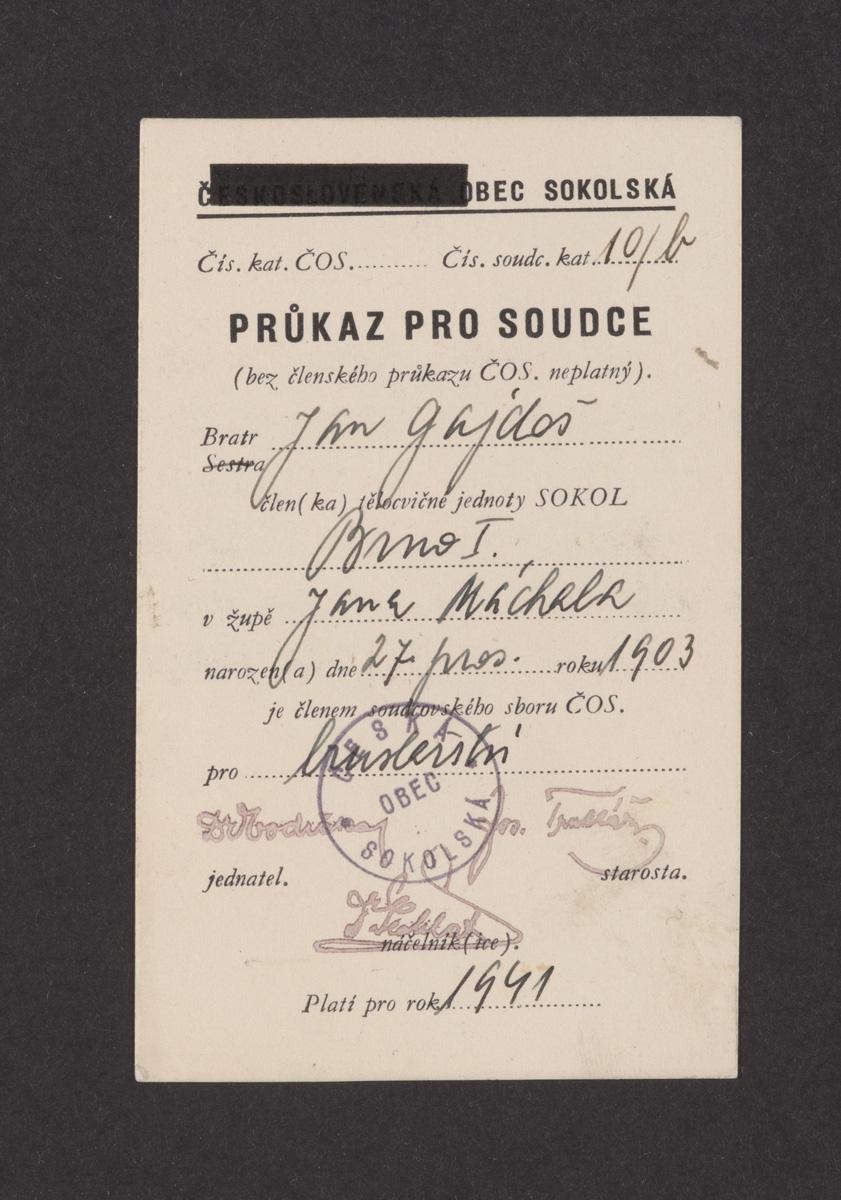 ČESKOSLOVENSKÁ OBEC SOKOLSKÁ
Čís. kat. ČOS. .......... Čís. soudc. kat. 10/b
PRŮKAZ PRO SOUDCE
(bez členského průkazu ČOS. neplatný).
Bratr Jan Gajdoš
Sestra
člen(ka) tělocvičné jednoty SOKOL
Brno I.
v župě Jana Máchala
narozen(a) dne 27. pros. roku 1903
je členem soudcovského sboru ČOS.
pro bruslařství
ČESKÁ OBEC SOKOLSKÁ
Jos. Truhlář
jednatel. starosta.
náčelník(ice).
Platí pro rok 1941